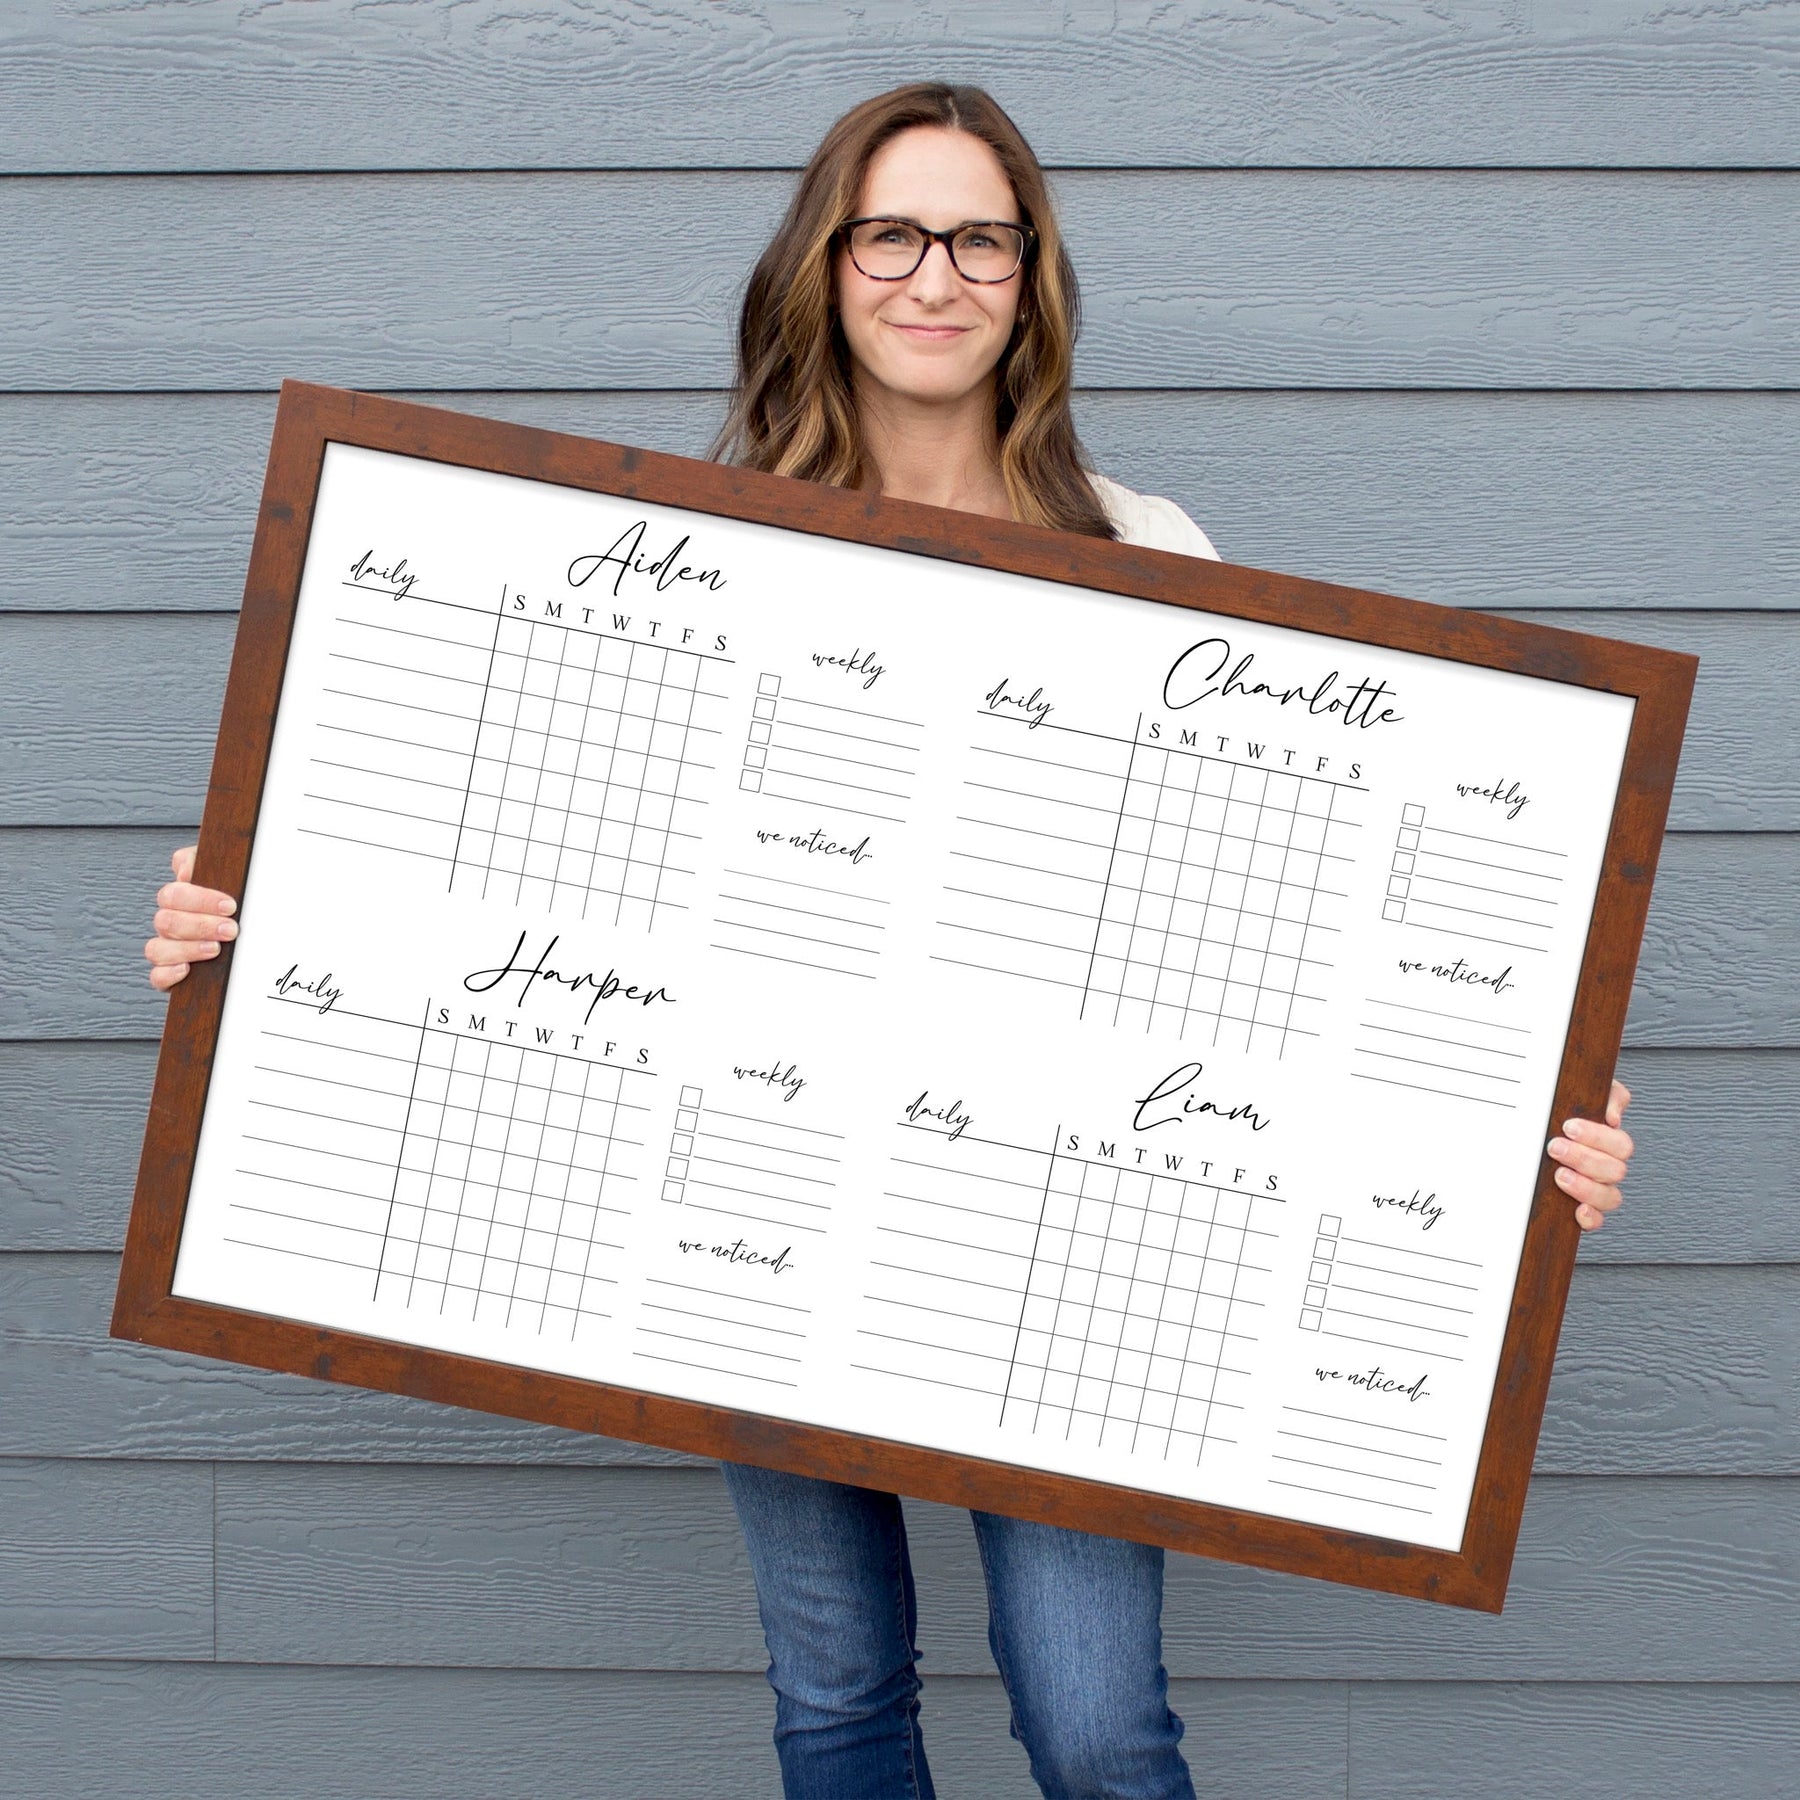 Aiden
daily
S M T W T F S
weekly
we noticed...
Charlotte
daily
S M T W T F S
weekly
we noticed...
Harper
daily
S M T W T F S
weekly
we noticed...
Liam
daily
S M T W T F S
weekly
we noticed...